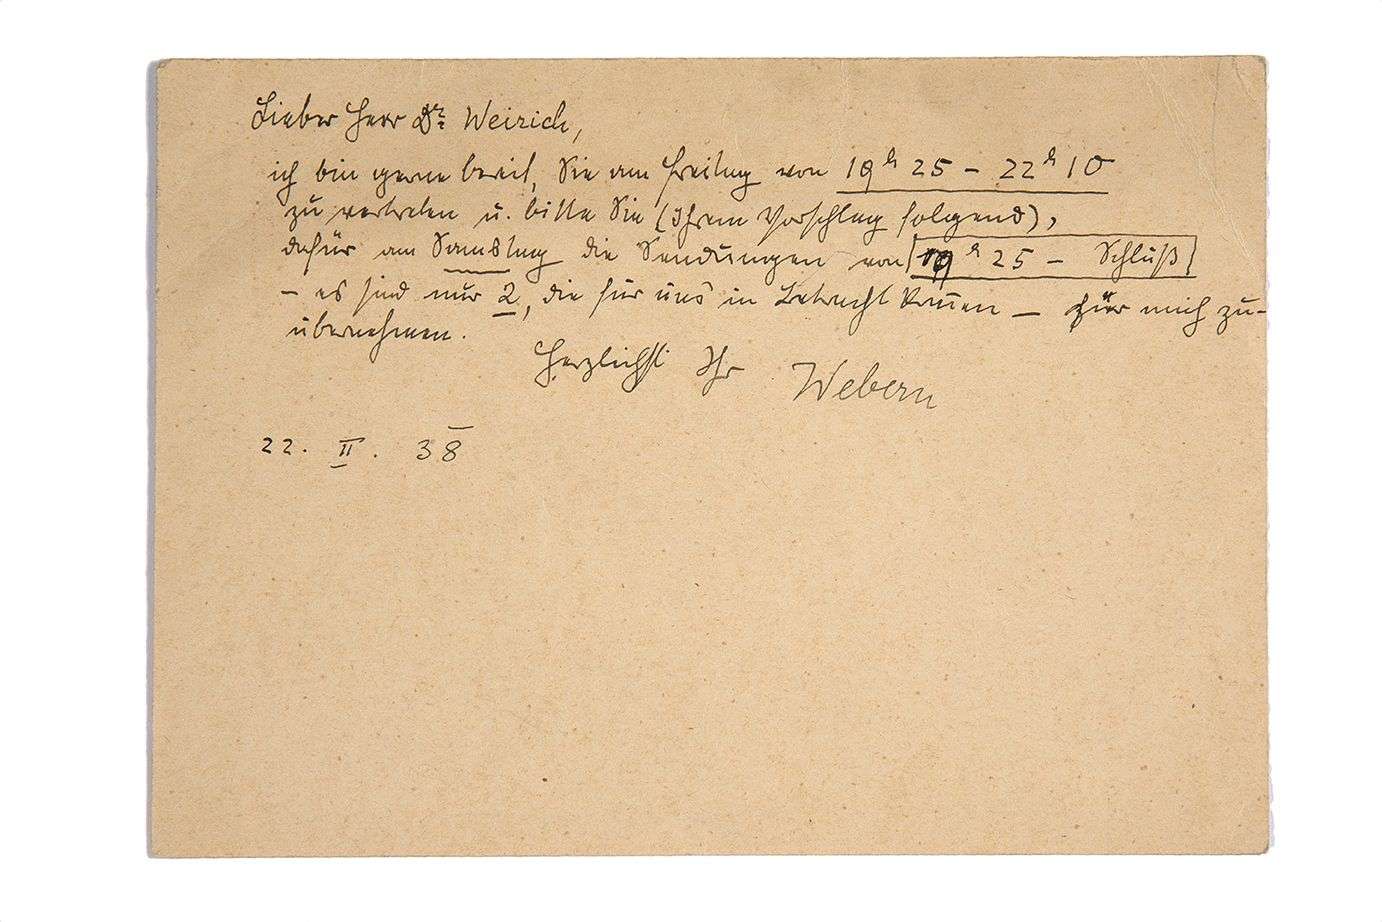 Lieber Herr Dr. Weirich,
ich bin gerne bereit, Sie am Freitag von 19h 25 – 22h 10
zu vertreten u. bitte Sie (Ihrem Vorschlag folgend),
dafür am Samstag die Sendungen von 19h 25 – Schluß
– es sind nur 2, die für uns in Betracht kom̄en – für mich zu
übernehmen.
Herzlichst Ihr Webern
22. II. 38